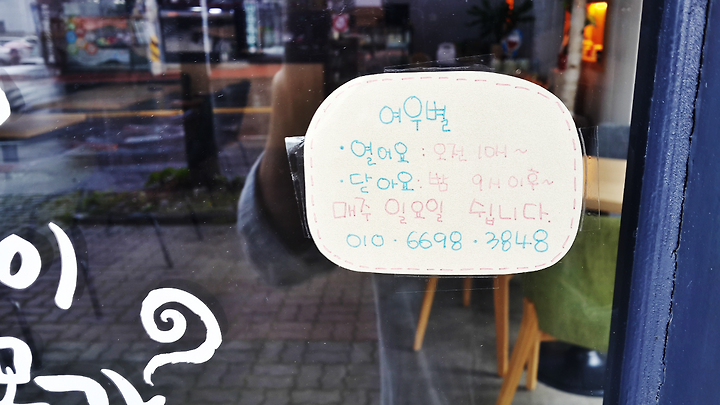 여우별
·열어요 : 오전 10시 ~
·닫아요: 밤 9시 이후~
매주 일요일 쉽니다.
010·6698·3848
이